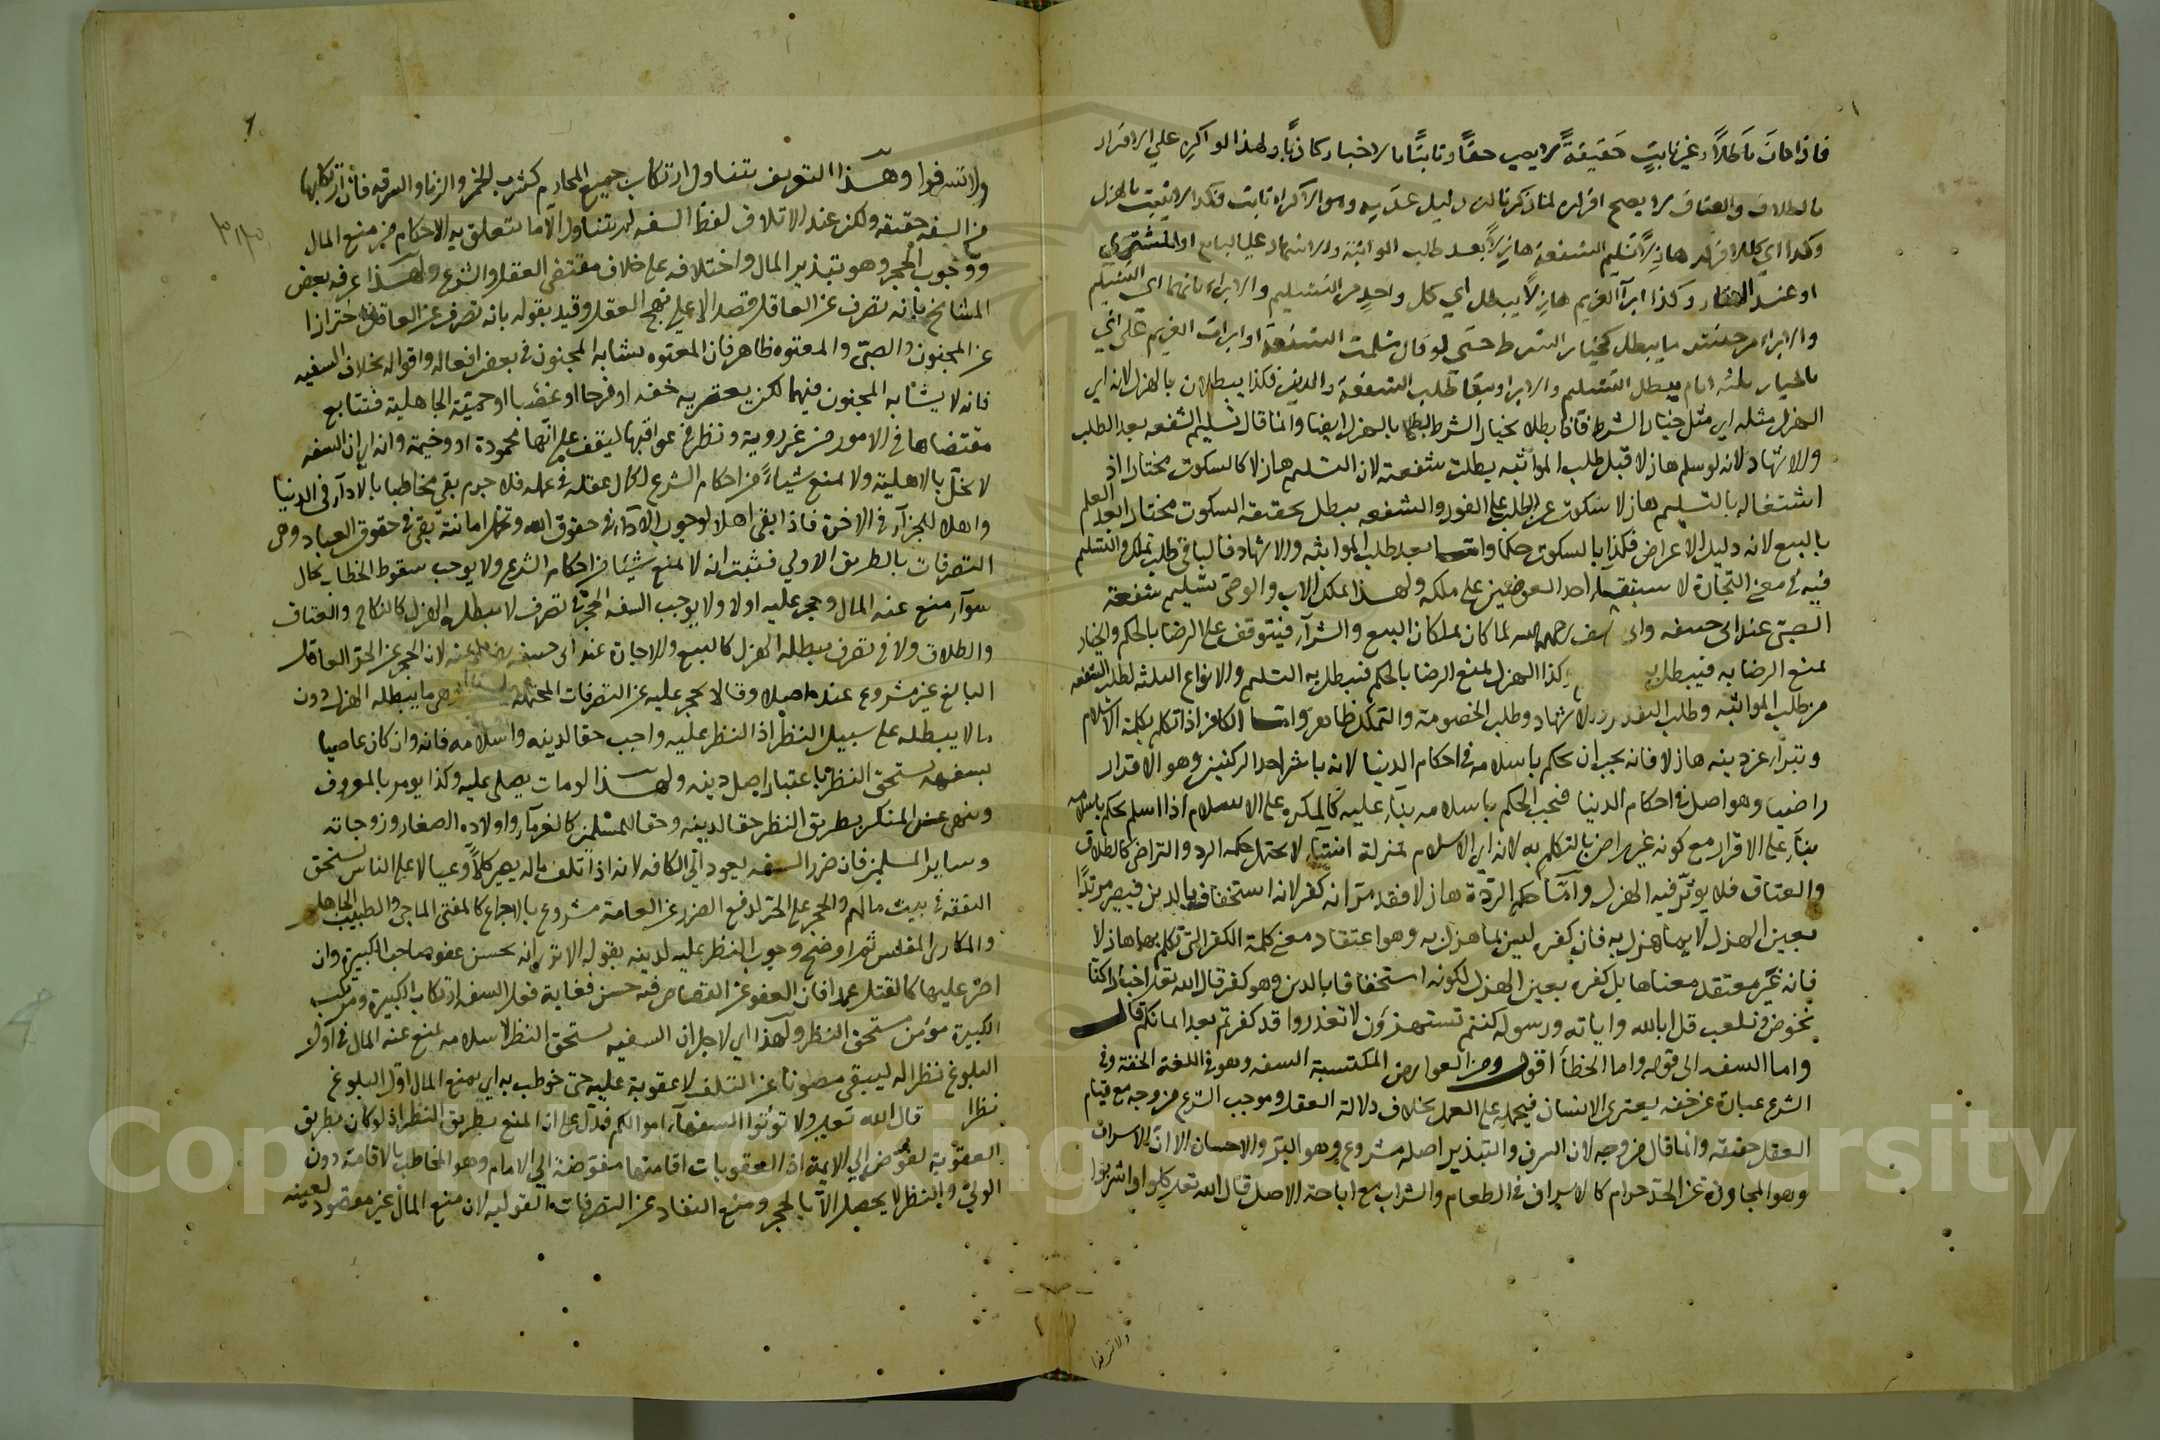 فاذا كان باطلاً وغير ثابت حقيقةً لا يصير حقًّا وثابتًا بالاخبار كاذبًا ولهذا لو اكره على الاقرار
بالطلاق والعتاق لا يصح اقراره لما ذكرنا لان دليل عدمه وهو الاكراه ثابت فكذا لا يثبت بالهزل
وكذا اي كالاقرار هازلاً تسليم الشفعة هازلاً بعد طلب المواثبة والاشهاد على البايع او المشتري
او عند العقار وكذا ابرآ الغريم هازلاً يبطل اي كل واحد من التسليم والابراء لانهما اي التسليم
والابراء من جنس ما يبطل بخيار الشرط حتى لو قال سلمت الشفعة او ابرات الغريم على اني
بالخيار ثلثه ايام يبطل التسليم والابرا ويبقا طلب الشفعة والدين فكذا يبطلان بالهزل لانه اي
الهزل مثله اي مثل خيار الشرط فاذا بطلا بخيار الشرط بطلا بالهزل ايضا وانما قال تسليم الشفعه بعد الطلب
والاشهاد لانه لو سلم هازلا قبل طلب المواثبه بطلت شفعته لان التسليم هازلا كالسكوت مختارا اذ
اشتغاله بالتسليم هازلا سكوت عن الطلب على الفور والشفعه يبطل بحقيقه السكوت مختارا بعد العلم
بالبيع لانه دليل الاعراض فكذا بالسكوت حكما واما بعد طلب المواثبه والاشهاد فالباقي طلب تملك والتسليم
فيه في معنى التجارة لا ستبقا احد العوضين على ملكه ولهذا يملك الاب والوصي تسليم شفعته
الصبي عند ابي حنيفه وابي يوسف رحمهما الله لما كان يملكان البيع والشرآ فيتوقف على الرضا بالحكم والخيار
يمنع الرضا به فيبطل به وكذا الهزل يمنع الرضا بالحكم فيبطل به التسليم والانواع الثلثه لطلب الشفعه
من طلب المواثبه وطلب التقرير والاشهاد وطلب الخصومة والتملك ظاهر واما الكافر اذا تكلم بكلمة الاسلام
وتبرآ عن دينه هازلا فانه يجب ان يحكم باسلامه في احكام الدنيا لانه باشر احد الركنين وهو الاقرار
راضيا وهو اصل في احكام الدنيا فيجب الحكم باسلامه بنآ عليه كالمكره على الاسلام اذا اسلم يحكم باسلامه
بنآ على الاقرار مع كونه غير راض بالتكلم به لانه اي الاسلام بمنزلة انشآء لا يحتمل حكمه الرد والتراخي كالطلاق
والعتاق فلا يوثر فيه الهزل واما حكم الردّة هازلا فقد مر انه كفر لانه استخفاف بالدين فيصير مرتدًا
بعين الهزل لا بما هزل به فان كفره ليس بما هزل به وهو اعتقاد معنى كلمة الكفر التي تكلم بها هازلا
فانه غير معتقد معناها بل كفره بعين الهزل لكونه استخفافا بالدين وهو كفر قال الله تعالى اخبارا كنّا
نخوض ونلعب قل ابالله واياته ورسوله كنتم تستهزؤن لا تعتذروا قد كفرتم بعد ايمانكم قال
واما السفه الى قوله واما الخطأ اقول ومن العوارض المكتسبة السفه وهو في اللغة الخفة وفي
الشرع عبارة عن خفه يعتري الانسان فيحمله على العمل بخلاف دلالة العقل وموجب الشرع من وجه مع قيام
العقل حقيقه وانما قال من وجه لان السرف والتبذير اصله مشروع وهو البر والاحسان الا ان الاسراف
وهو المجاوزة عن الحدّ حرام كالاسراف في الطعام والشراب مع اباحة الاصل قال الله تعالى كلوا واشربوا
ولا تسرفوا
ولا تسرفوا وهذا التعريف يتناول ارتكاب جميع المحارم كشرب الخمر والزنا والسرقه فان ارتكابها
من السفه حقيقه ولكن عند الاطلاق لفظ السفه لم يتناول الا ما يتعلق به الاحكام من منع المال
ووجوب الحجر وهو تبذير المال واختلافه على خلاف مقتضى العقل والشرع ولهذا عرفه بعض
المشايخ بانه تصرف عن العاقل قصد لا على نهج العقل وقيد بقوله بانه تصرف عن العاقل احترازا
عن المجنون والصبي والمعتوه ظاهر فان المعتوه يشابه المجنون في بعض افعاله واقواله بخلاف السفيه
فانه لا يشابه المجنون فيهما لكن يعتريه خفه او فرحا او غضبا او حميّة الجاهلية فيتابع
مقتضاها في الامور من غير روية ونظر في عواقبها ليقف على انها محمودة او وخيمة وانه اي ان السفه
لا يخل بالاهلية ولا يمنع شياً من احكام الشرع لكمال عقله في عمله فلا جرم بقى مخاطبا بالادآ في الدنيا
واهلا للجزآ في الاخرة فاذا بقى اهلا لوجوب الادآ في حقوق الله وتحمل امانته بقى في حقوق العباد وهي
التصرفات بالطريق الاولى فثبت انه لا يمنع شيئا من احكام الشرع ولا يوجب سقوط الخطاب بحال
سوآ منع عنه المال وحجر عليه اولا ولا يوجب السفه الحجر في تصرف لا يبطله الهزل كالنكاح والعتاق
والطلاق ولا في تصرف يبطله الهزل كالبيع والاجارة عند ابي حنيفه رضي الله عنه لان الحجر عن الحر العاقل
البالغ غير مشروع عنده اصلا وقالا يحجر عليه عن التصرفات المحتملة وهي ما يبطله الهزل دون
ما لا يبطله على سبيل النظر اذ النظر عليه واجب حقا لدينه واسلامه فانه وان كان عاصيا
بسفهه يستحق النظر باعتبار اصل دينه ولهذا لو مات يصلى عليه وكذا يومر بالمعروف
وينهى عن المنكر بطريق النظر حقا لدينه وحقا للمسلمين كالغرمآ واولاده الصغار وزوجاته
وساير المسلمين فان ضرر السفه يعود الى الكافه لانه اذا تلف ماله يصير كلاً وعيالا على الناس يستحق
النفقه في بيت مالهم والحجر على الحر لدفع الضرر عن العامة مشروع بالاجماع كالمفتي الماجن والطبيب الجاهل
والمكاري المفلس ثم اوضح وجوب النظر عليه لدينه بقوله الا ترى انه يحسن عفو صاحب الكبيرة وان
اصرّ عليها كالقتل عمدا فان العفو عن القصاص فيه حسن فغاية فعل السفه ارتكاب الكبيرة ومرتكب
الكبيرة مؤمن يستحق النظر ولهذا اي لاجل ان السفيه يستحق النظر لاسلامه يمنع عنه المال في اول
البلوغ نظرا له ليبقى مصونا عن التلف لا عقوبة عليه حتى خوطب به اي بمنع المال اوّل البلوغ
نظرا قال الله تعالى ولا تؤتوا السفهآ اموالكم فدل على ان المنع بطريق النظر اذ لو كان بطريق
العقوبة لفوّض الى الايمة اذ العقوبات اقامتها مفوّضة الى الامام وهو المخاطب بالاقامة دون
الولي والنظر لا يحصل الا بالحجر ومنع النفاد عن التصرفات القوليه لان منع المال غير مقصود لعينه
Copyright © King Saud University